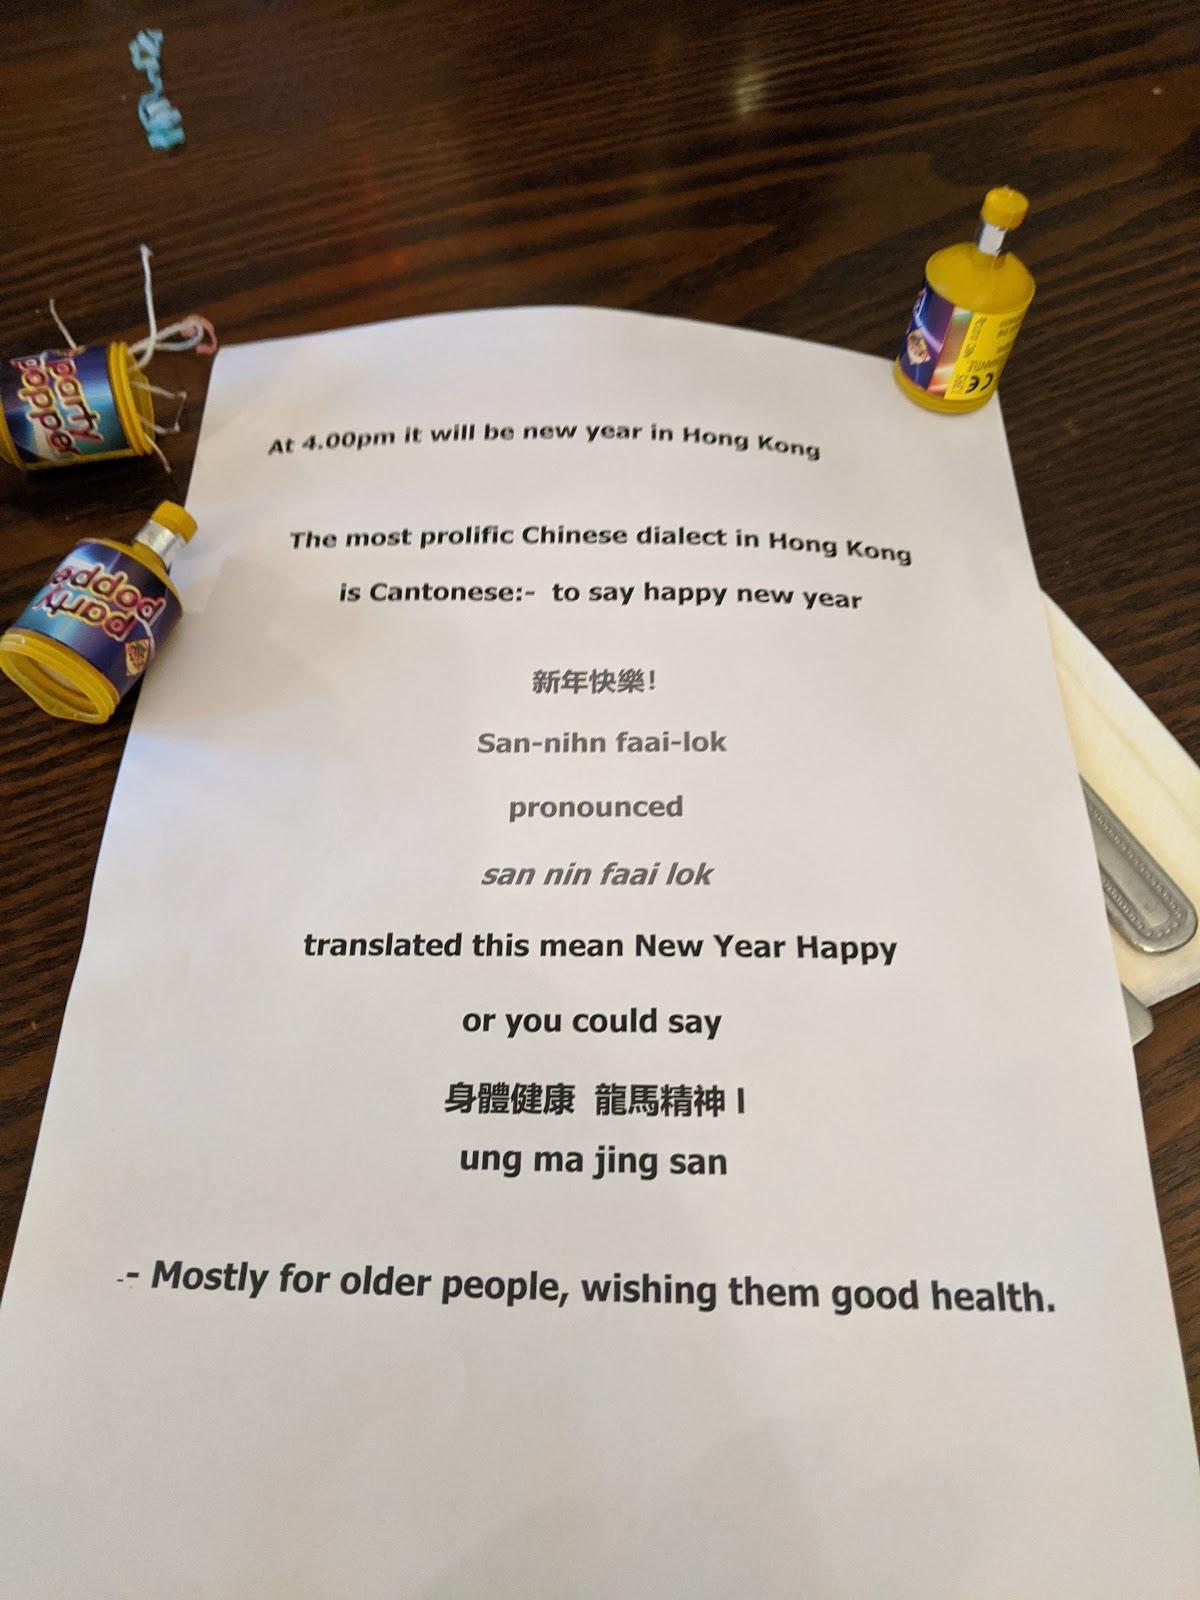 At 4.00pm it will be new year in Hong Kong
The most prolific Chinese dialect in Hong Kong
is Cantonese:- to say happy new year
新年快樂!
San-nihn faai-lok
pronounced
san nin faai lok
translated this mean New Year Happy
or you could say
身體健康 龍馬精神 I
ung ma jing san
-- Mostly for older people, wishing them good health.
party
popper
party
poppe
CE